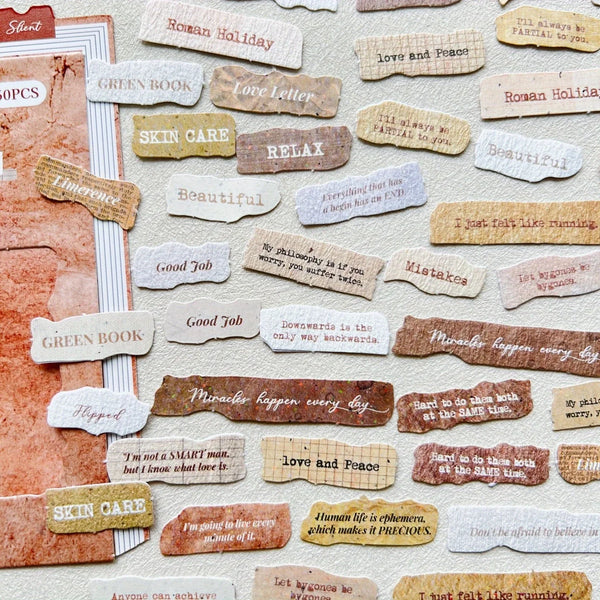 Silent
Roman Holiday
I'll always be
PARTIAL to you.
love and Peace
GREEN BOOK
Love Letter
Roman Holiday
50PCS
SKIN CARE
I'll always be
PARTIAL to you.
RELAX
Beautiful
Limerence
Beautiful
Everything that has
a begin has an END.
I just felt like running.
Good Job
My philosophy is if you
worry, you suffer twice.
Mistakes
Let bygones be
bygones.
GREEN BOOK
Good Job
Downwards is the
only way backwards.
Miracles happen every day
Miracles happen every day
Flipped
Hard to do them both
at the SAME time.
My
worry,
"I'm not a SMART man,
but I know what love is.
love and Peace
Hard to do them both
at the SAME time.
SKIN CARE
I'm going to live every
minute of it.
Human life is ephemera,
which makes it PRECIOUS.
Don't be afraid to believe in
Anyone can achieve
Let bygones be
bygones.
I just felt like running.